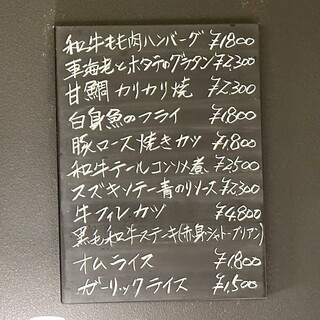 和牛もも肉ハンバーグ ¥1800
車海老とホタテのグラタン ¥2,300
甘鯛カリカリ焼 ¥2,300
白身魚のフライ ¥1800
豚ロース焼きカツ ¥1,800
和牛テールコンソメ煮 ¥2500
スズキソテー青のりソース ¥2,300
牛フィレカツ ¥4,800
黒毛和牛ステーキ(赤身シャトーブリアン)
オムライス ¥1,800
ガーリックライス ¥1,500